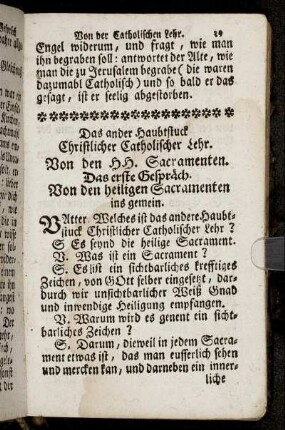 Von der Catholischen Lehr. 29
Engel widerum, und fragt, wie man
ihn begraben soll: antwortet der Alte, wie
man die zu Jerusalem begrabe (die waren
dazumahl Catholisch) und so bald er das
gesagt, ist er seelig abgestorben.
Das ander Haubtstuck
Christlicher Catholischer Lehr.
Von den HH. Sacramenten.
Das erste Gespräch.
Von den heiligen Sacramenten
ins gemein.
VAtter. Welches ist das andere Haubt-
stuck Christlicher Catholischer Lehr ?
S. Es seynd die heilige Sacrament.
V. Was ist ein Sacrament ?
S. Es ist ein sichtbarliches krefftiges
Zeichen, von GOtt selber eingesetzt, dar-
durch wir unsichtbarlicher Weiß Gnad
und inwendige Heiligung empfangen.
V. Warum wird es genent ein sicht-
barliches Zeichen ?
S. Darum, dieweil in jedem Sacra-
ment etwas ist, das man eusserlich sehen
und mercken kan, und darneben ein inner-
liche